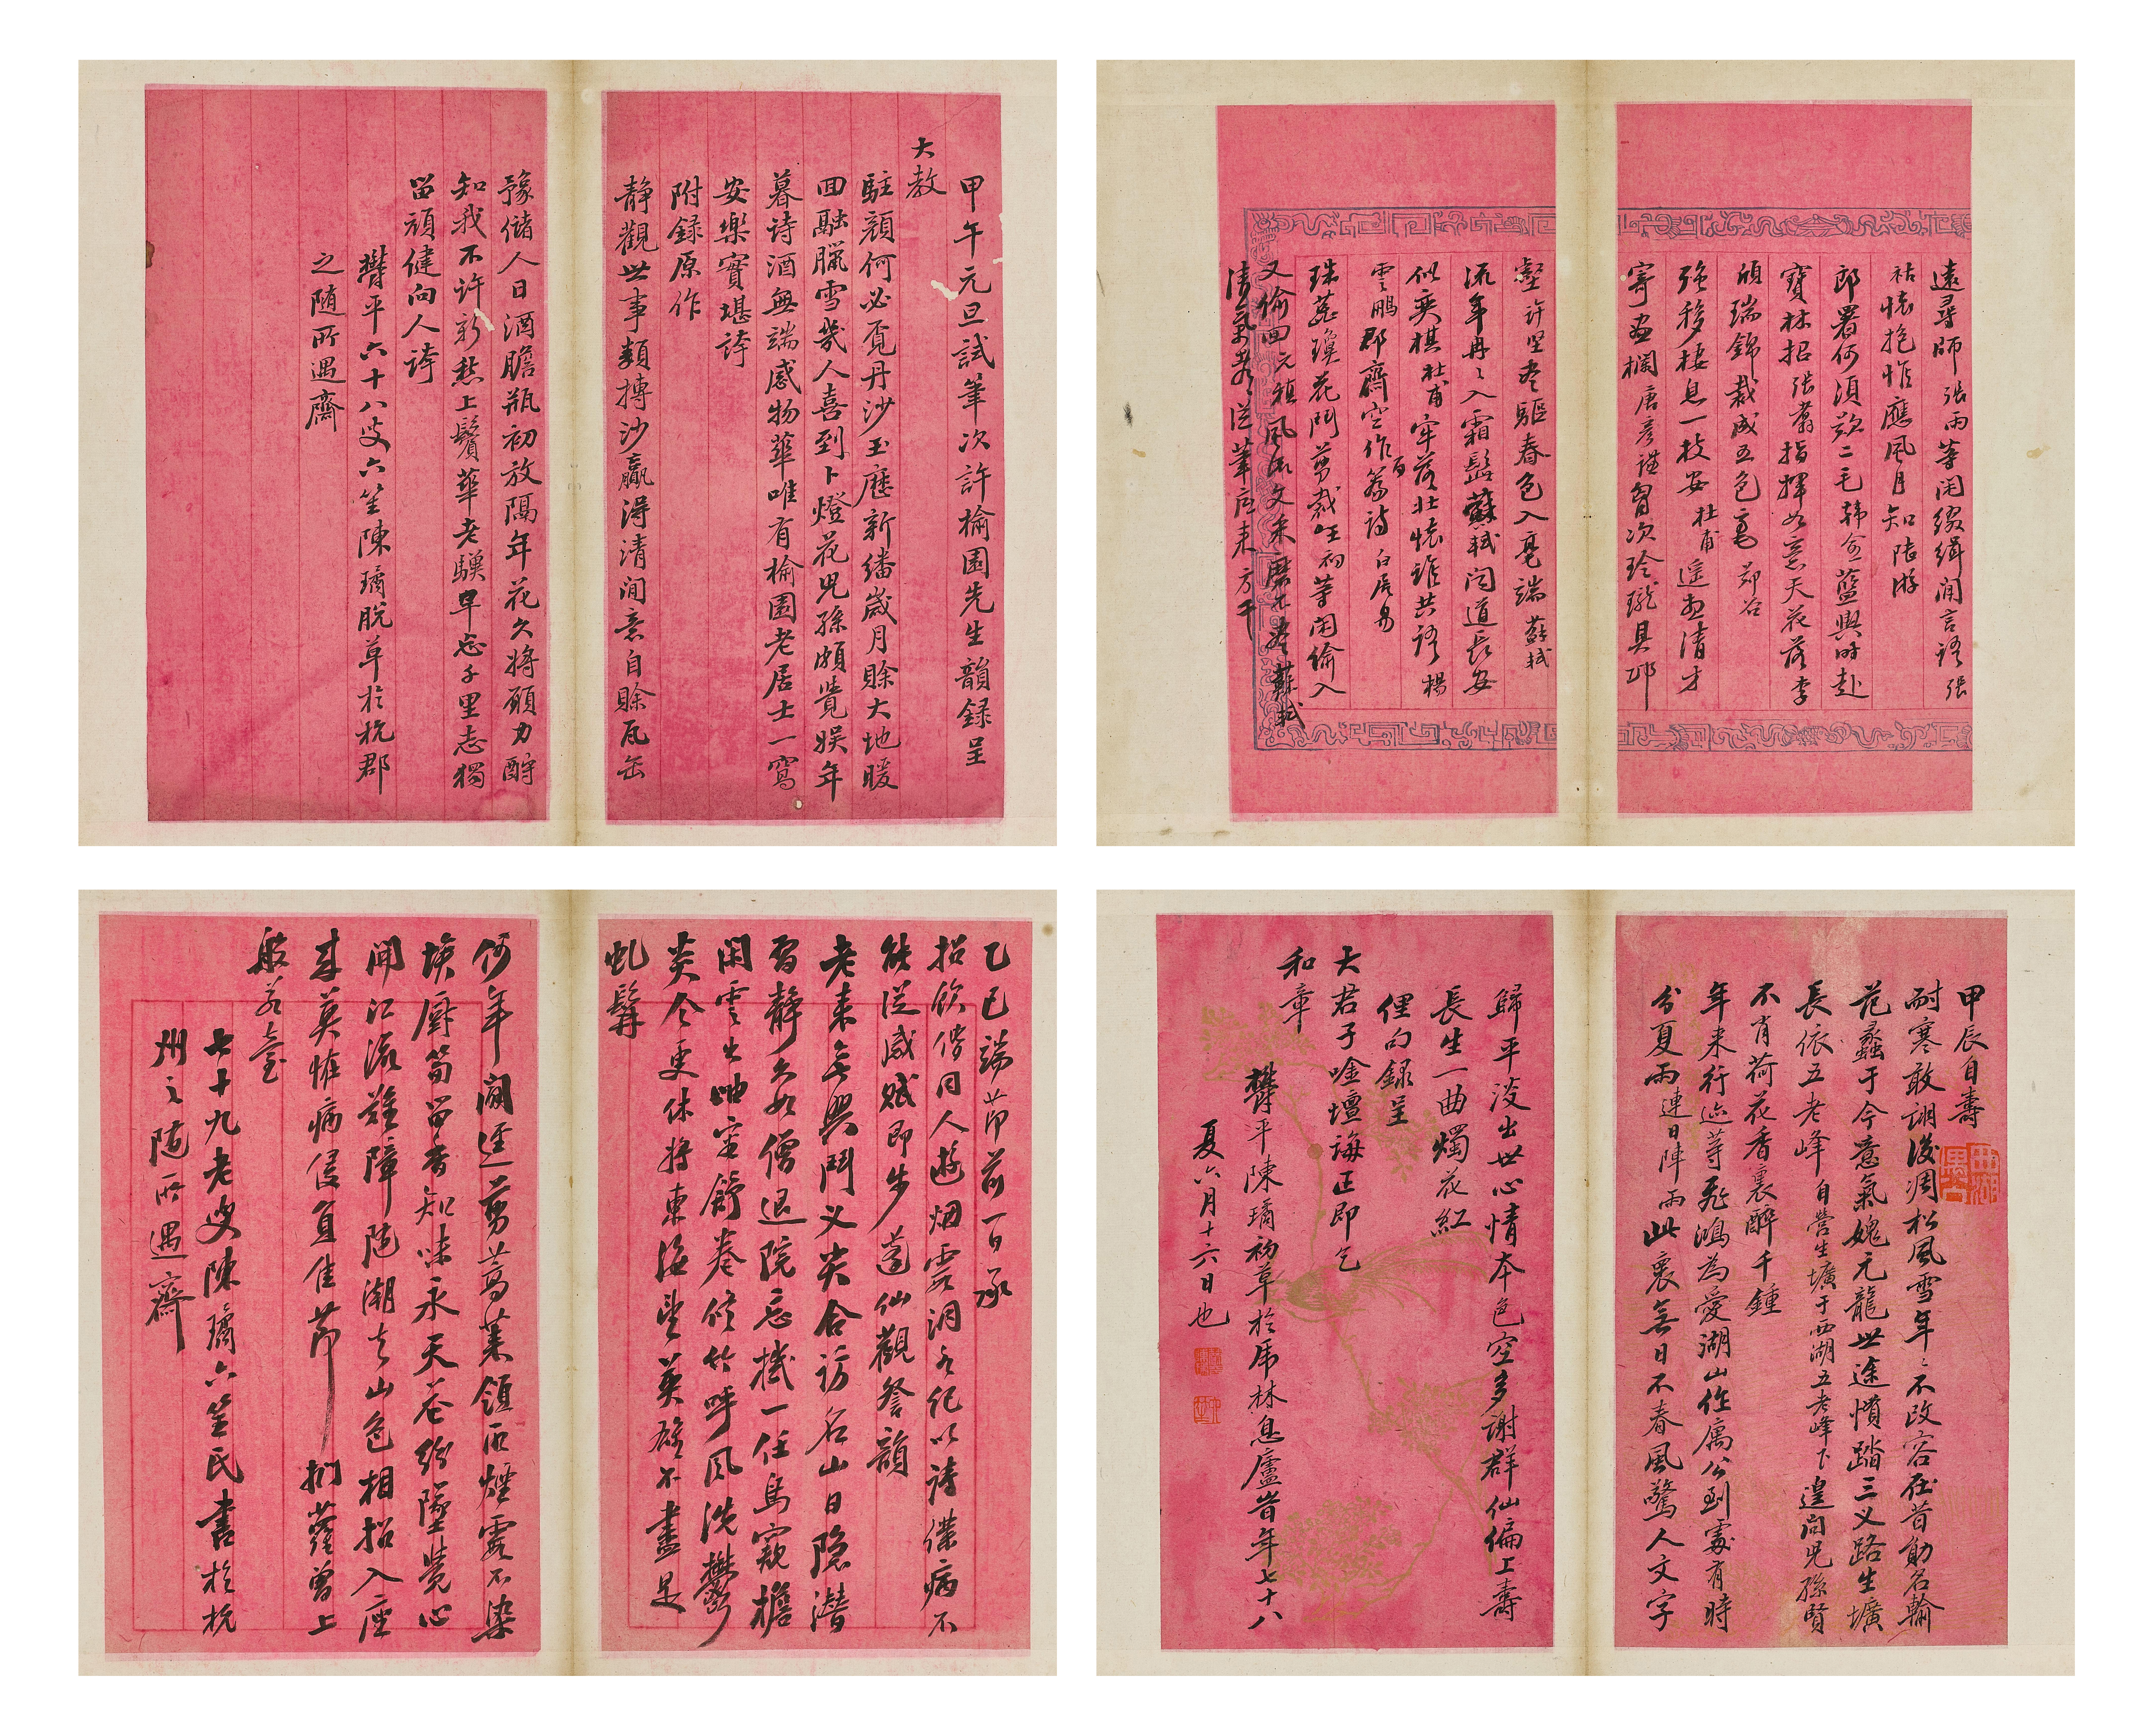 甲午元旦試筆次許榆園先生韻録呈
大教
駐顔何必覓丹沙玉曆新繙歲月賖大地暖
回融臘雪幾人喜到卜燈花児孫頗覺娱年
暮詩酒無端感物華唯有榆園老居士一窩
安樂實堪誇
附録原作
靜觀世事類摶沙贏得清閒意自賖瓦缶
豫儲人日酒膽瓶初放隔年花久將願力酧
知我不許新愁上鬢華老驥早忘千里志獨
留頑健向人誇
鬱平六十八叟六笙陳璚脱草於杭郡
之随所遇齋
遠尋師張雨等閑綴緝閒言語張
祜懷抱惟應風月知陸游
郎署何須歎二毛韓翃藍輿時赴
寶林招張翥指揮如意天花落李
頎瑞錦裁成五色毫鄭谷
強移棲息一枝安杜甫遥想清才
寄畫欄唐彦謙胷次玲瓏具邱
壑許堅盡驅春色入毫端蘇軾
流年冉冉入霜髭蘇軾聞道長安
似奕棋杜甫牢落壯懷誰共語楊
雲鵬郡齋空作百篇詩白居易
珠蕊瓊花鬥剪裁初等閑偷入
又偷回元稹風流文采磨不盡蘇軾
清氣從筆底来方干
乙巳端節前一日承
招飲偕同人遊烟霞洞各紀以詩僕病不
能從感賦即步葛仙觀詧韻
老来無興鬥义尖合訪名山日隐潜
習靜久如僧退院忘機一任鳥窺檐
閑雲出岫空舒卷修竹呼風洗鬱
炎今更休將東海望英雄不盡是
虬髯
何年開徑剪蒿萊領取煙霞不染
埃厨笋留香知味永天花紛墜覺心
開江流難障随潮去山色相招入座
来莫惟病侵負佳節捫蘿曾上
般若臺
七十九老叟陳璚六笙氏書於杭
州之随所遇齋
甲辰自壽
西湖寓公
耐寒敢詡後凋松風雪年〻不改容在昔勛名輸
范蠡于今意氣媿元龍世途慣踏三义路生壙
長依五老峰自營生壙于西湖五老峰下遑問児孫賢
不肖荷花香裏醉千鍾
年来行迹等飛鴻為愛湖山作寓公到處有時
分夏雨連日陣雨此裏無日不春風驚人文字
歸平淡出世心情本色空多謝群仙偏上壽
長生一曲燭花紅
俚句録呈
大君子唫壇誨正即乞
和章
鬱平陳璚初草於虎林息廬旹年七十八
夏六月十六日也